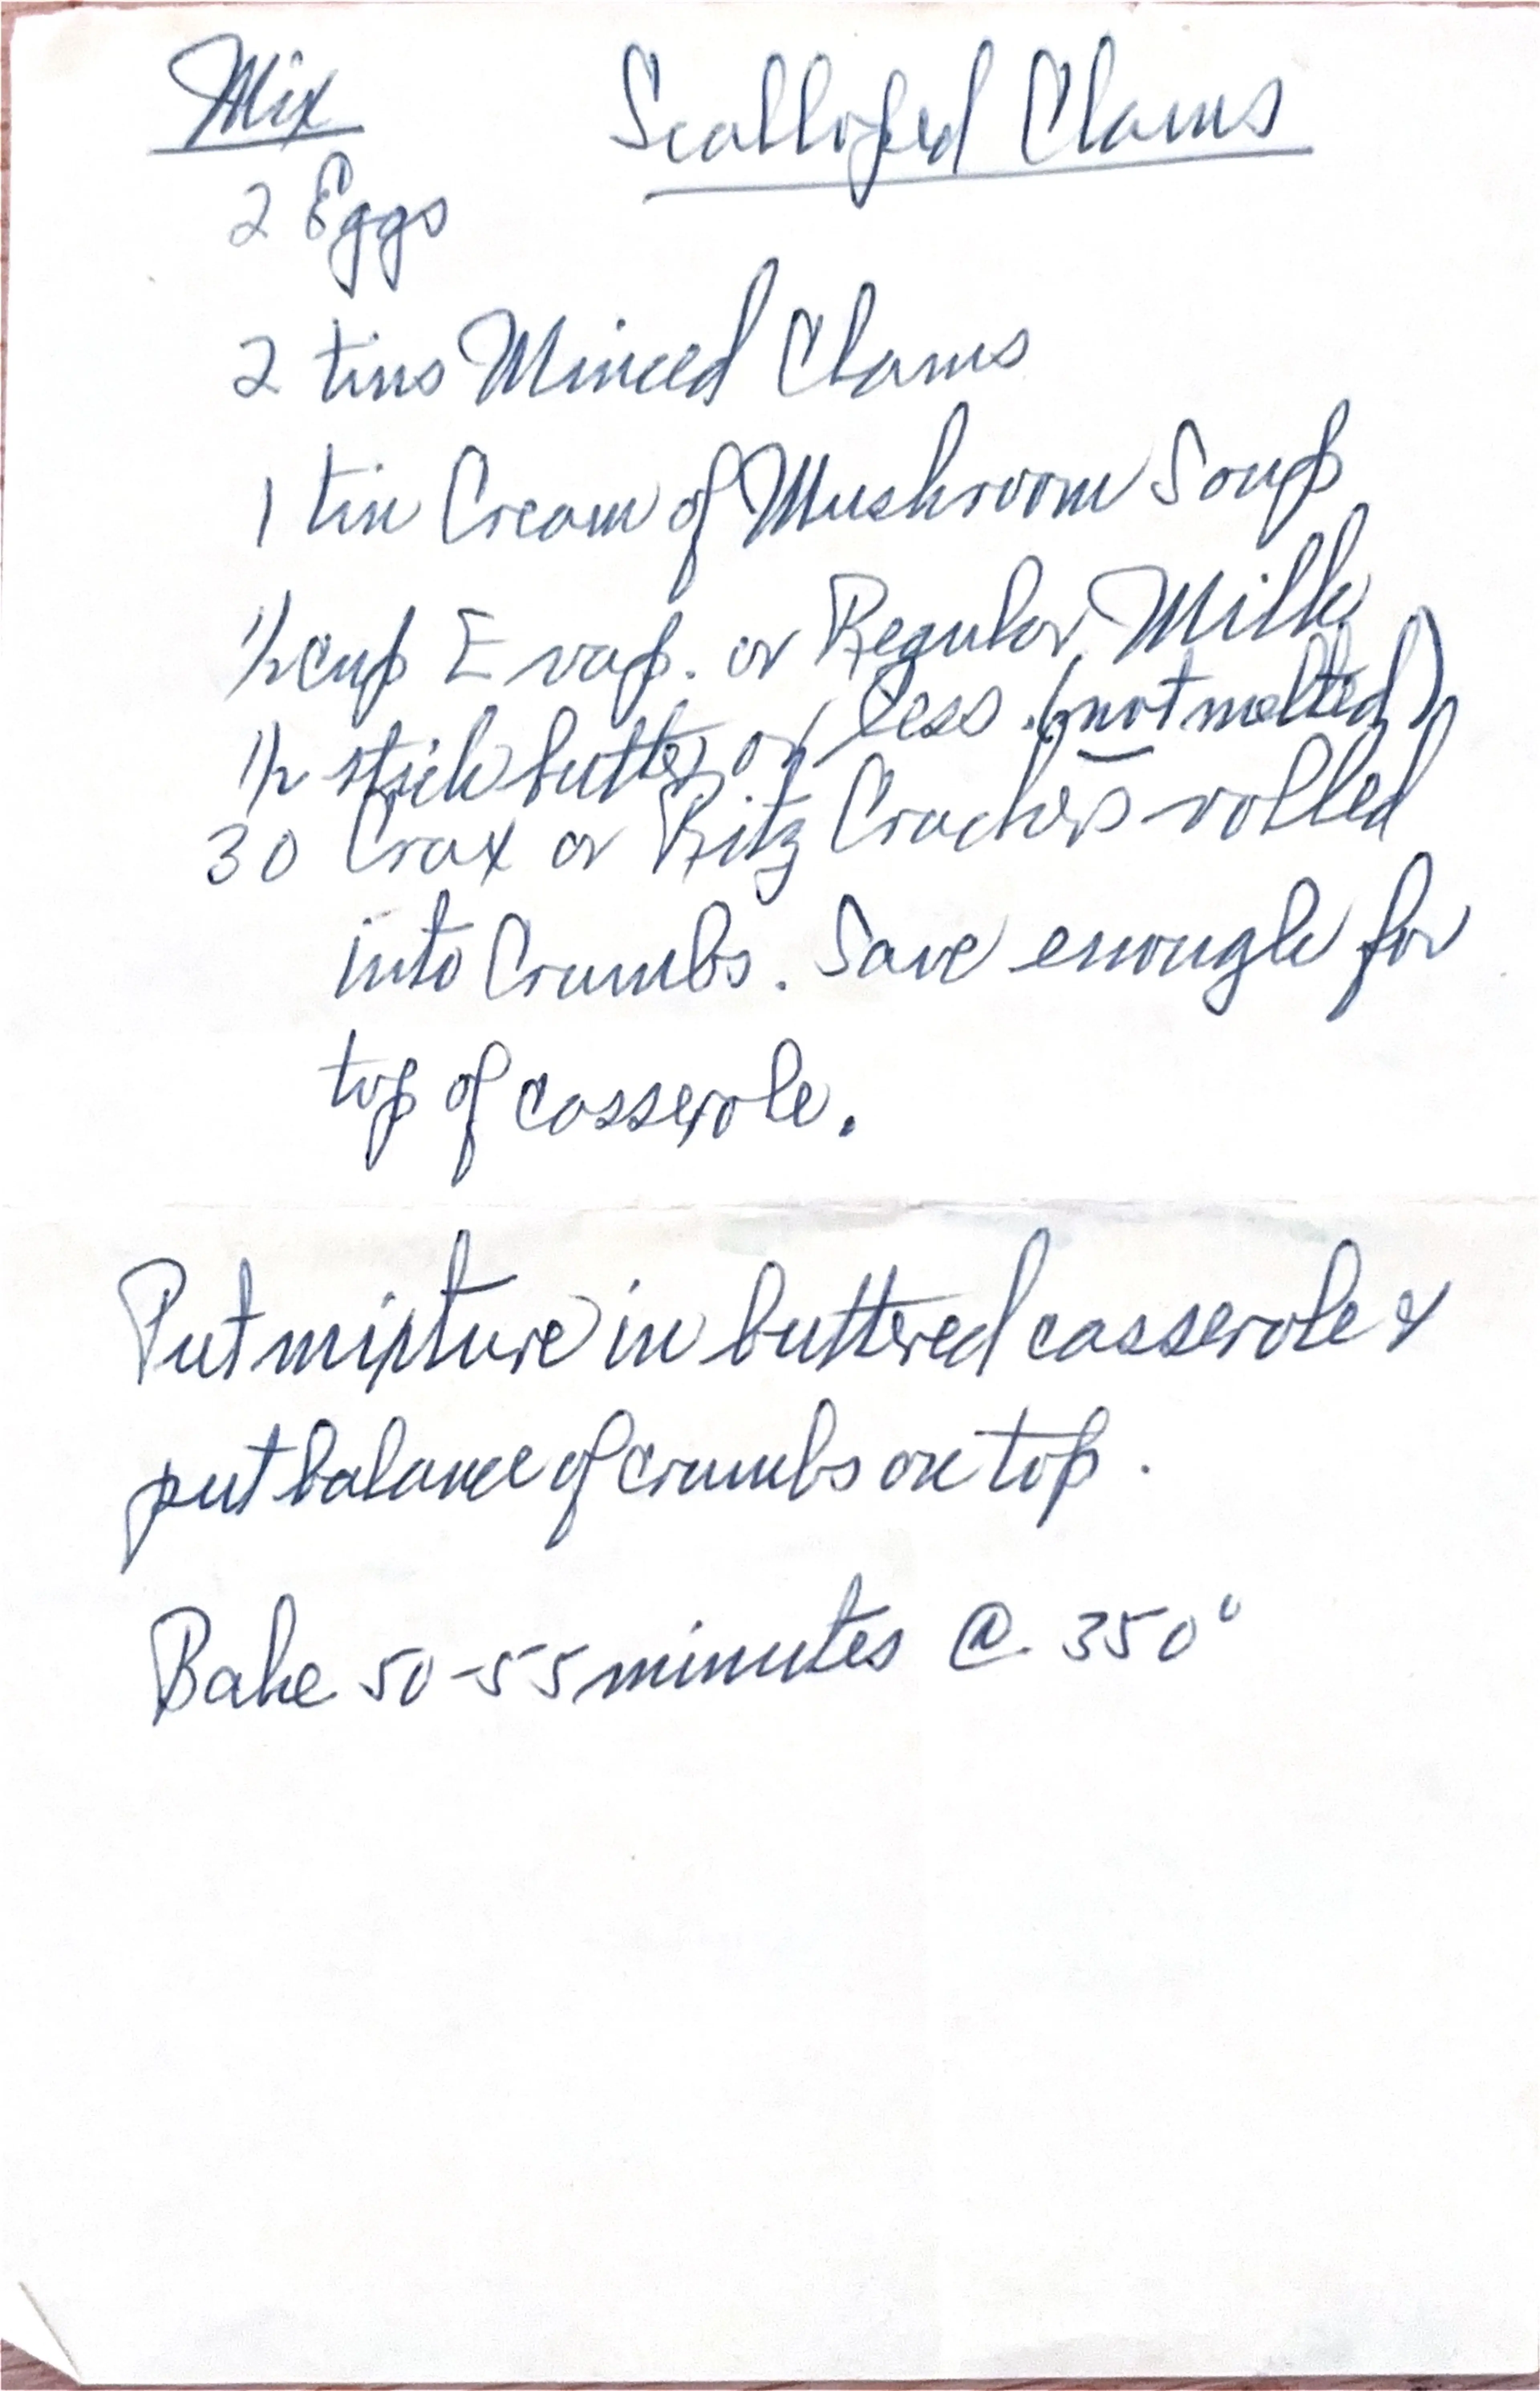 Mix
Scalloped Clams
2 Eggs
2 tins Minced Clams
1 tin Cream of Mushroom Soup
1/2 cup Evap. or Regular Milk
1/2 stick butter or less. (not melted)
30 Crax or Ritz Crackers rolled
into Crumbs. Save enough for
top of casserole.
Put mixture in buttered casserole &
put balance of crumbs on top.
Bake 50-55 minutes @ 350°